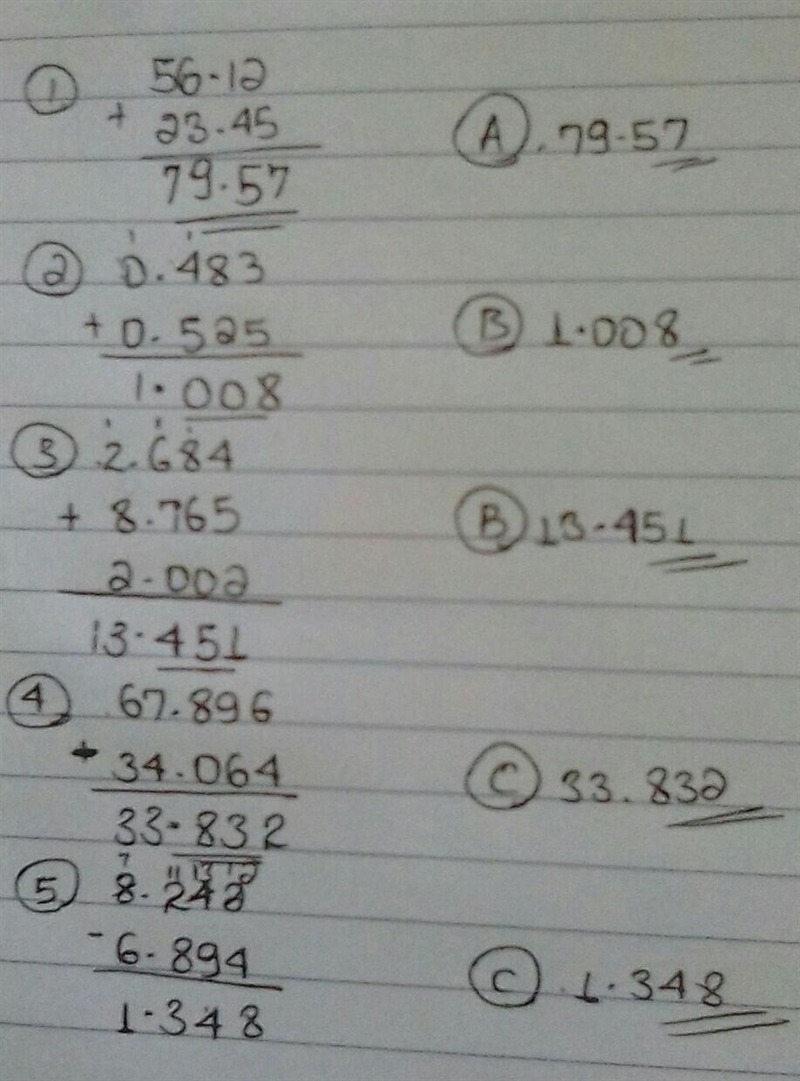 ① 56.12
+ 23.45 Ⓐ . 79.57
79.57
1 1
② 0.483
+ 0.525 Ⓑ 1.008
1.008
1 1 1
③ 2.684
+ 8.765 Ⓑ 13.451
2.002
13.451
④ 67.896
+ 34.064 Ⓒ 33.832
33.832
7 11 13 12
⑤ 8.242
- 6.894 Ⓒ 1.348
1.348